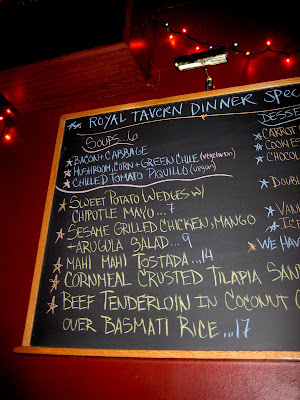 ROYAL TAVERN DINNER SPEC
SOUPS. 6
BACON + CABBAGE
MUSHROOM, CORN + GREEN CHILE (vegetarian)
CHILLED TOMATO PIQUILLO (vegan)
SWEET POTATO WEDGES W/
CHIPOTLE MAYO...7
SESAME GRILLED CHICKEN, MANGO
+ ARUGULA SALAD...9
MAHI MAHI TOSTADA...14
CORNMEAL CRUSTED TILAPIA SAN
BEEF TENDERLOIN IN COCONUT C
OVER BASMATI RICE...17
DESSE
CARROT
COOKIES
CHOCOL
DOUB
VAN
ICE
WE HAV